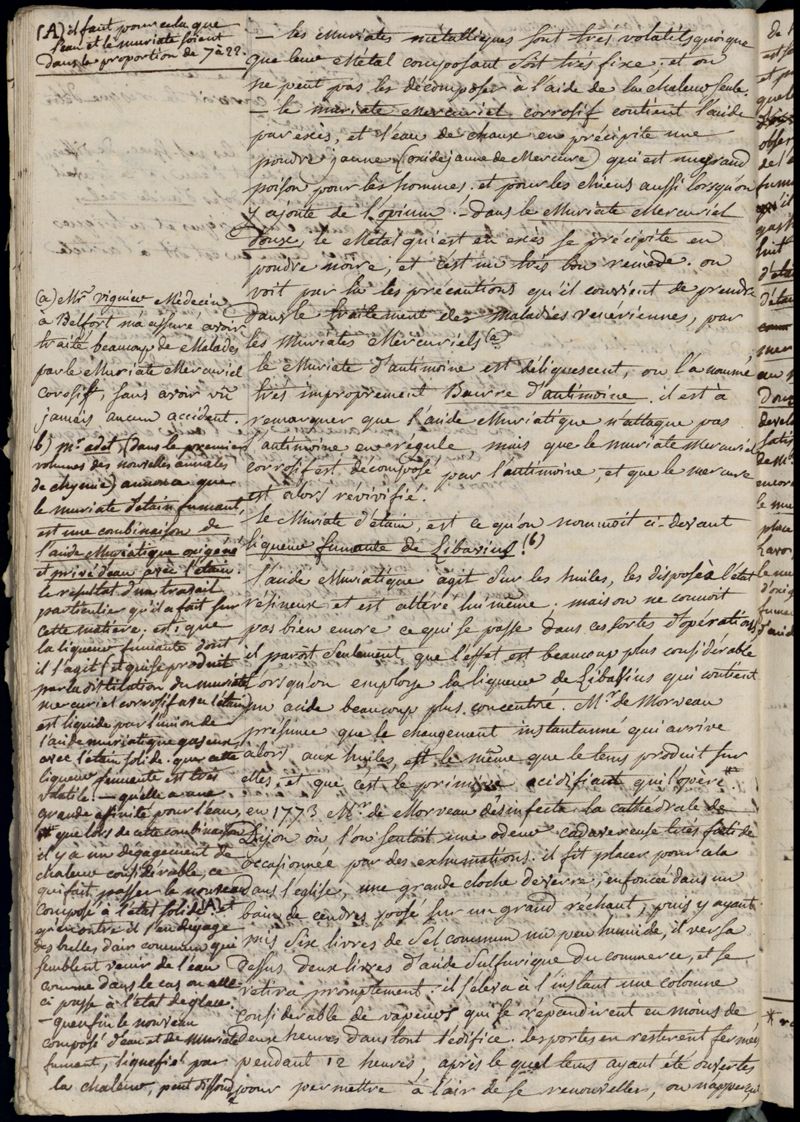 (A) il faut pour cela que
l'eau et le muriate soient
dans la proportion de 7 à 22.
- les Muriates métalliques sont très volatils quoique
que leur Métal composant soit très fixe. et on
ne peut pas les décomposer à l'aide de la chaleur seule.
- le muriate Mercuriel corrosif contient l'acide
par excès, et l'eau de chaux en précipite une
poudre jaune (oxide jaune de Mercure) qui est un grand
poison pour les hommes. et pour les chiens aussi lorsqu'on
y ajoute de l'opium. - dans le Muriate Mercuriel
doux, le Métal qui est en excès se précipite en
poudre noire, et c'est un très bon remede. on
voit par là les précautions qu'il convient de prendre
dans le traitement des Maladies vénériennes, par
les Muriates Mercuriels (a)
le Muriate d'antimoine est déliquescent, on l'a nommé
très improprement Beurre d'antimoine. il est à
remarquer que l'acide Muriatique n'attaque pas
l'antimoine en régule, mais que le muriate Mercuriel
corrosif est décomposé par l'antimoine, et que le mercure
est alors révivifié.
le Muriate d'étain, est ce qu'on nommoit ci-devant
liqueur fumante de Libavius. (b)
l'acide Muriatique agit sur les huiles, les dispose à l'état
résineux et est altéré lui même. mais on ne connoit
pas bien encore ce qui se passe dans ces sortes d'opérations
il paroit seulement que l'effet est beaucoup plus considérable
lorsqu'on employe la liqueur de Libavius qui contient
un acide beaucoup plus concentré. Mr. de Morveau
présume que le changement instantanné qui arrive
alors aux huiles, est le même que le tems produit sur
elles, et que c'est le principe acidifiant qui l'opère.*
en 1773 Mr. de Morveau désinfecta la cathédrale de
Dijon où l'on sentoit une odeur cadavereuse très fétide
occasionnée par des exhumations. il fit placer pour cela
dans l'église, une grande cloche de verre, enfoncée dans un
bain de cendres posée sur un grand réchaut, puis y ayant
mis six livres de sel commun un peu humide, il versa
dessus deux livres d'acide sulfurique du commerce, et se
retira promptement. il s'éleva à l'instant une colonne
considérable de vapeurs qui se répandirent en moins de
deux heures dans tout l'édifice. les portes en resterent fermées
pendant 12 heures, après le quel tems ayant été ouvertes
pour permettre à l'air de se renouveller, on n'apperçut
(a) Mr. viguier Médecin
à Belfort m'a assuré avoir
traité beaucoup de Malades
par le Muriate Mercuriel
corosif, sans avoir vû
jamais aucun accident.
b) mr. adet (dans le premier
volumes des nouvelles annales
de chymie) annonce que
le muriate d'étain fumant,
est une combinaison de
l'acide Muriatique oxigéné
et privé d'eau avec l'étain.
le résultat d'un travail
particulier qu'il a fait sur
cette matière. est; que
la liqueur fumante dont
il s'agit (et qui se produit
par la distilation du muriate
mercuriel corrosif avec l'étain
est liquide par l'union de
l'acide muriatique gaseux
avec l'étain solide. que cette
liqueur fumente est très
volatile. - qu'elle a une
grande afinité pour l'eau,
que lors de cette combinaison
il y a un dégagement de
chaleur considérable, ce
qui fait passer le nouveau
composé à l'état solide. (A)
qu'en outre il s'en dégage
des bulles d'air commun qui
semblent venir de l'eau
comme dans le cas ou elle
ci passe à l'état de glace.
- qu'enfin le nouveau
composé d'eau et de Muriate
fumant, liquefié par
la chaleur, peut dissoud